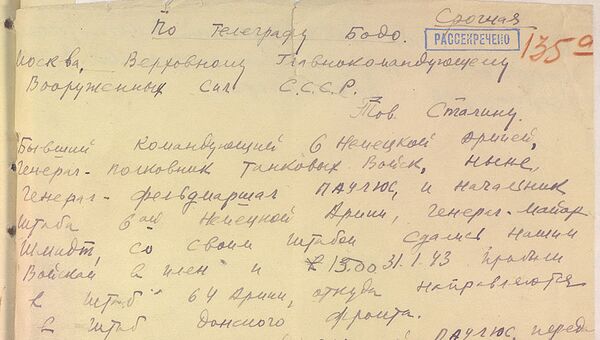 Срочная
По Телеграфу Бодо.
РАССЕКРЕЧЕНО
135а
Москва, Верховному Главнокомандующему
Вооруженных сил С.С.С.Р.
Тов. Сталину.
Бывший командующий 6 Немецкой Армией,
Генерал-полковник танковых войск, ныне,
Генерал-фельдмаршал ПАУЛЮС, и начальник
штаба 6ой Немецкой Армии, генерал-майор
Шмидт, со своим штабом сдались нашим
войскам в плен и к 15.00 31.1.43 прибыли
в штаб 64 Армии, откуда направляются
в штаб Донского фронта.
ПАУЛЮС, перед